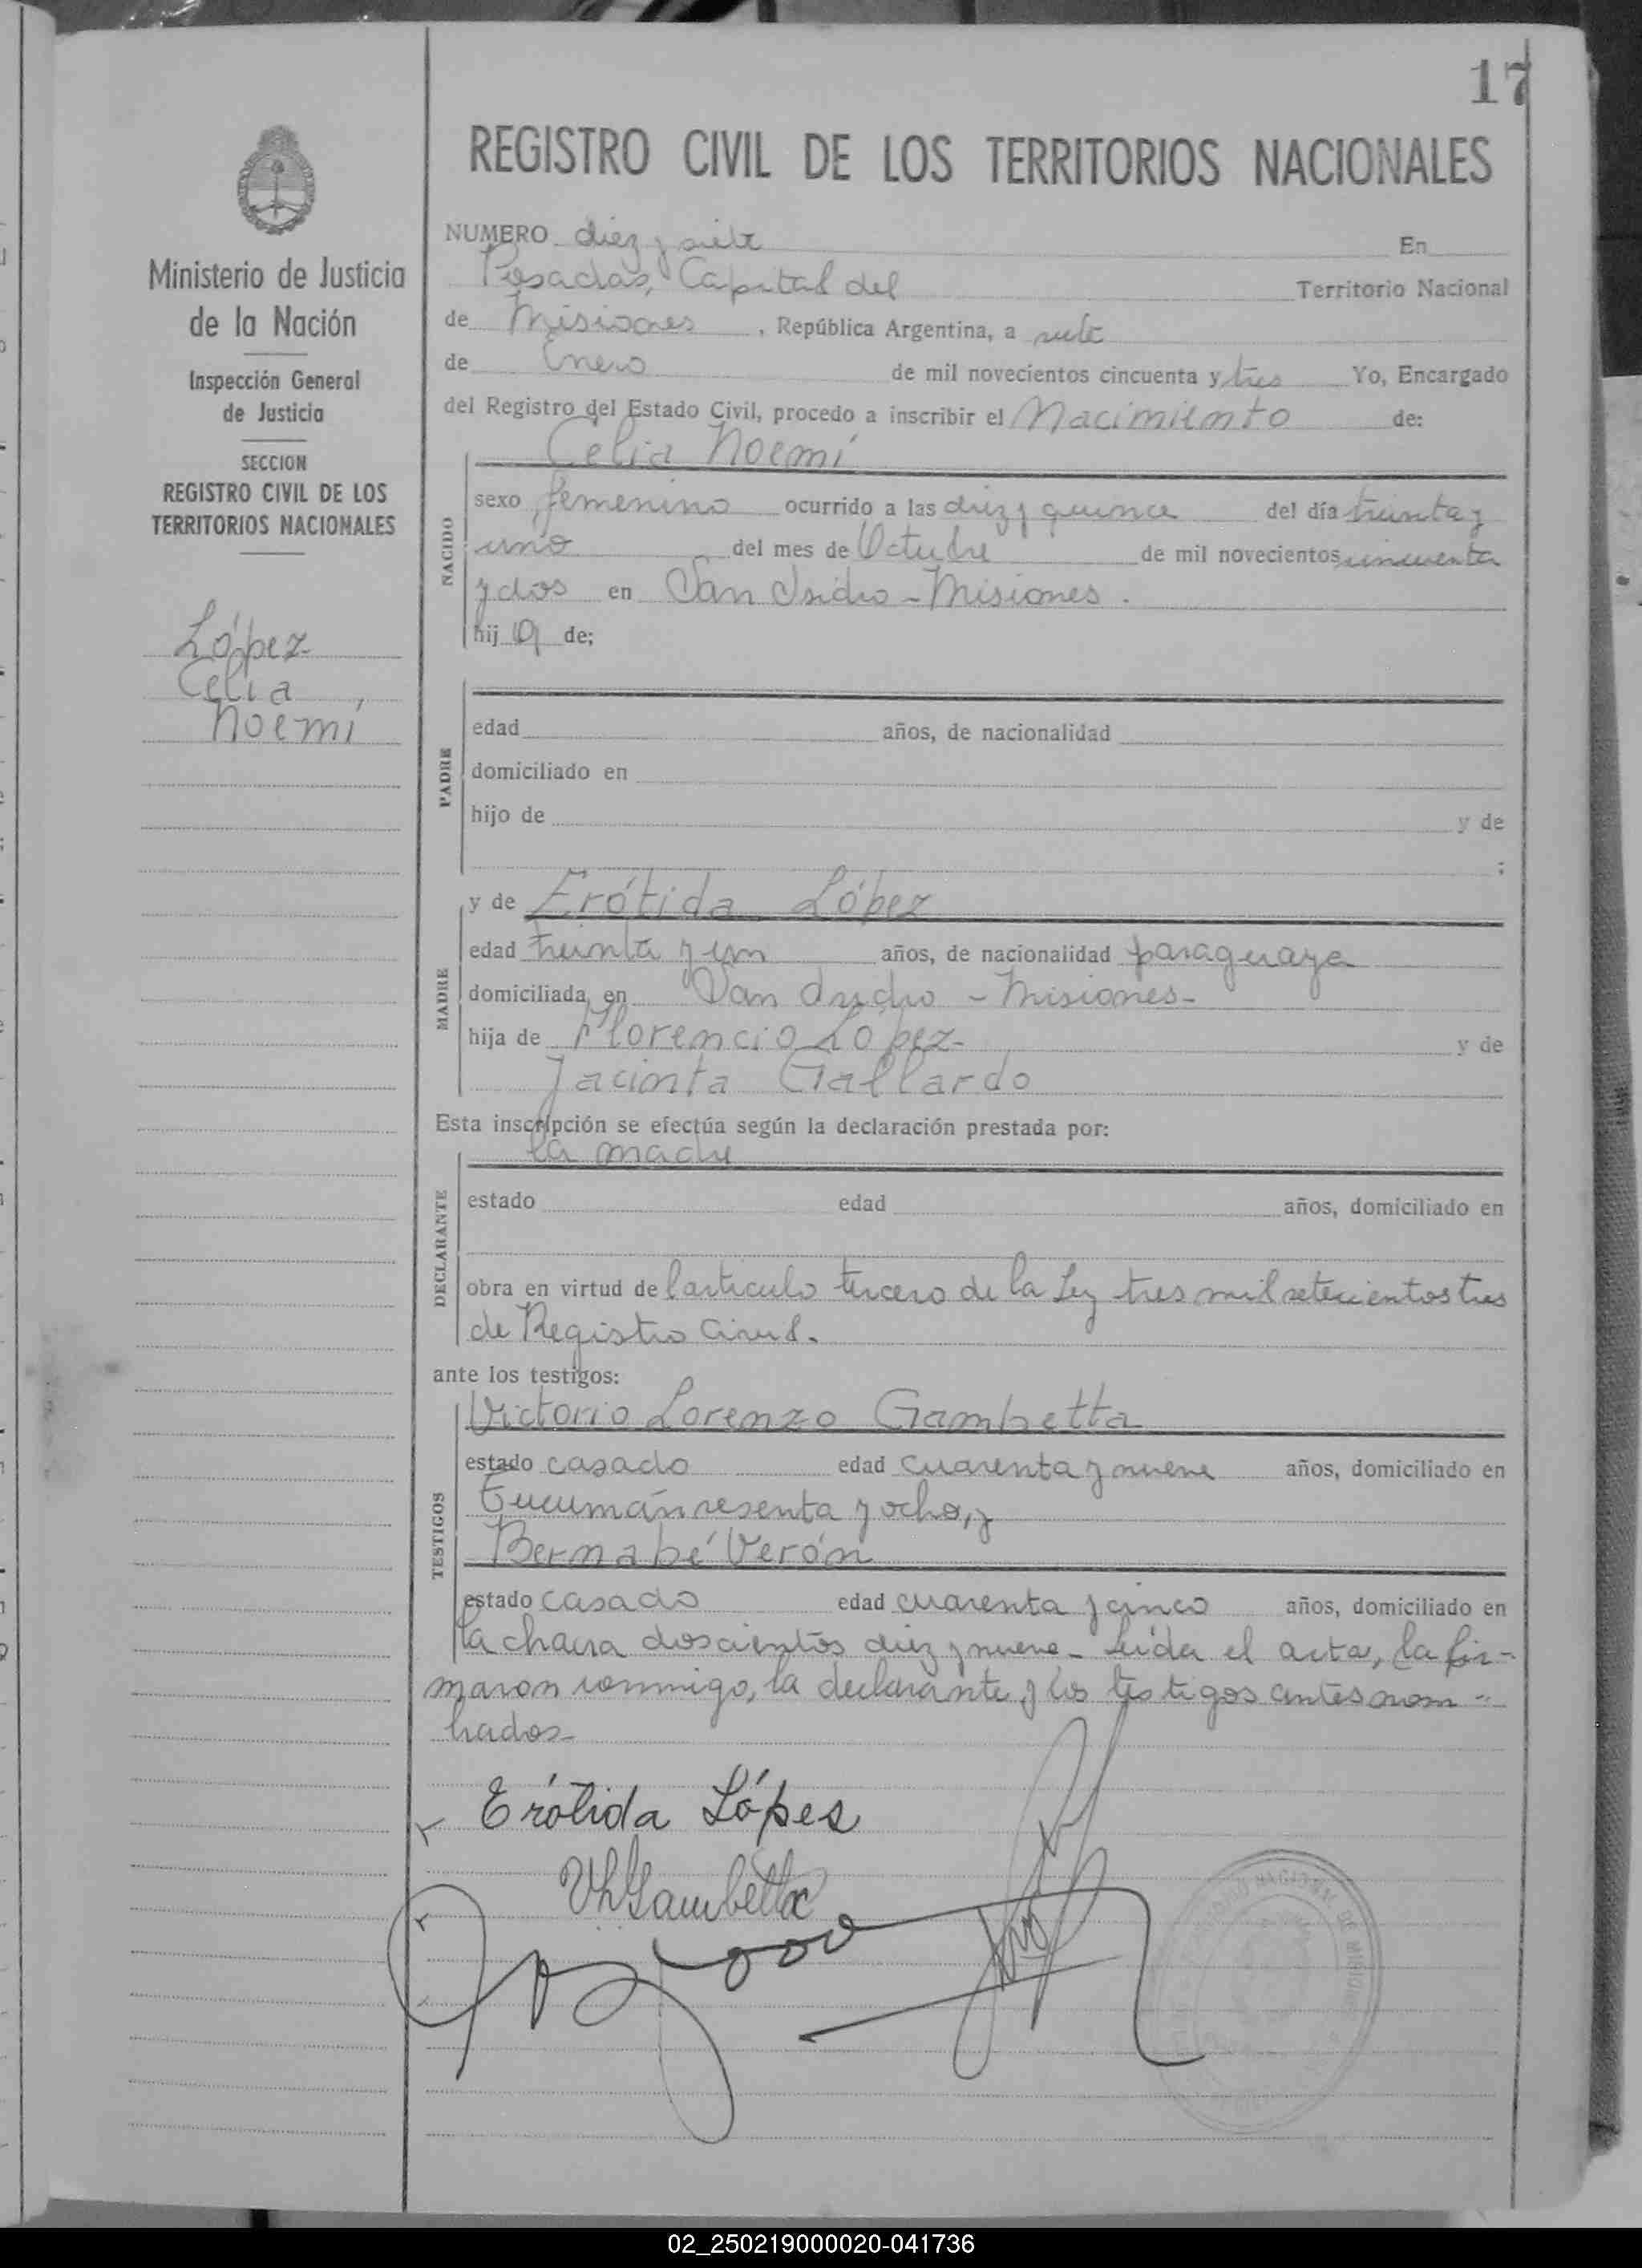 17
REGISTRO CIVIL DE LOS TERRITORIOS NACIONALES
Ministerio de Justicia
de la Nación
Inspección General
de Justicia
SECCION
REGISTRO CIVIL DE LOS
TERRITORIOS NACIONALES
López
Celia
Noemí
NUMERO diez y siete En
Posadas, Capital del Territorio Nacional
de Misiones, República Argentina, a siete
de Enero de mil novecientos cincuenta y tres Yo, Encargado
del Registro del Estado Civil, procedo a inscribir el Nacimiento de:
Celia Noemí
NACIDO
sexo femenino ocurrido a las diez y quince del día treinta y
uno del mes de Octubre de mil novecientos cincuenta
y dos en San Isidro - Misiones.
hij a de;
PADRE
edad años, de nacionalidad
domiciliado en
hijo de y de
;
MADRE
y de Erótida López
edad treinta y un años, de nacionalidad paraguaya
domiciliada en San Isidro - Misiones-
hija de Florencio López- y de
Jacinta Gallardo
Esta inscripción se efectúa según la declaración prestada por:
la madre
DECLARANTE
estado edad años, domiciliado en
obra en virtud de l articulo tercero de la Ley tres mil setecientos tres
de Registro Civil.
ante los testigos:
TESTIGOS
Victorio Lorenzo Gambetta
estado casado edad cuarenta y nueve años, domiciliado en
Tucumán sesenta y ocho, y
Bernabé Verón
estado casado edad cuarenta y cinco años, domiciliado en
la chacra doscientos diez y nueve - Leida el acta, la fir-
maron conmigo, la declarante y los testigos antes nom-
brados-
Erótida Lópes
VLGambetta
02_250219000020-041736